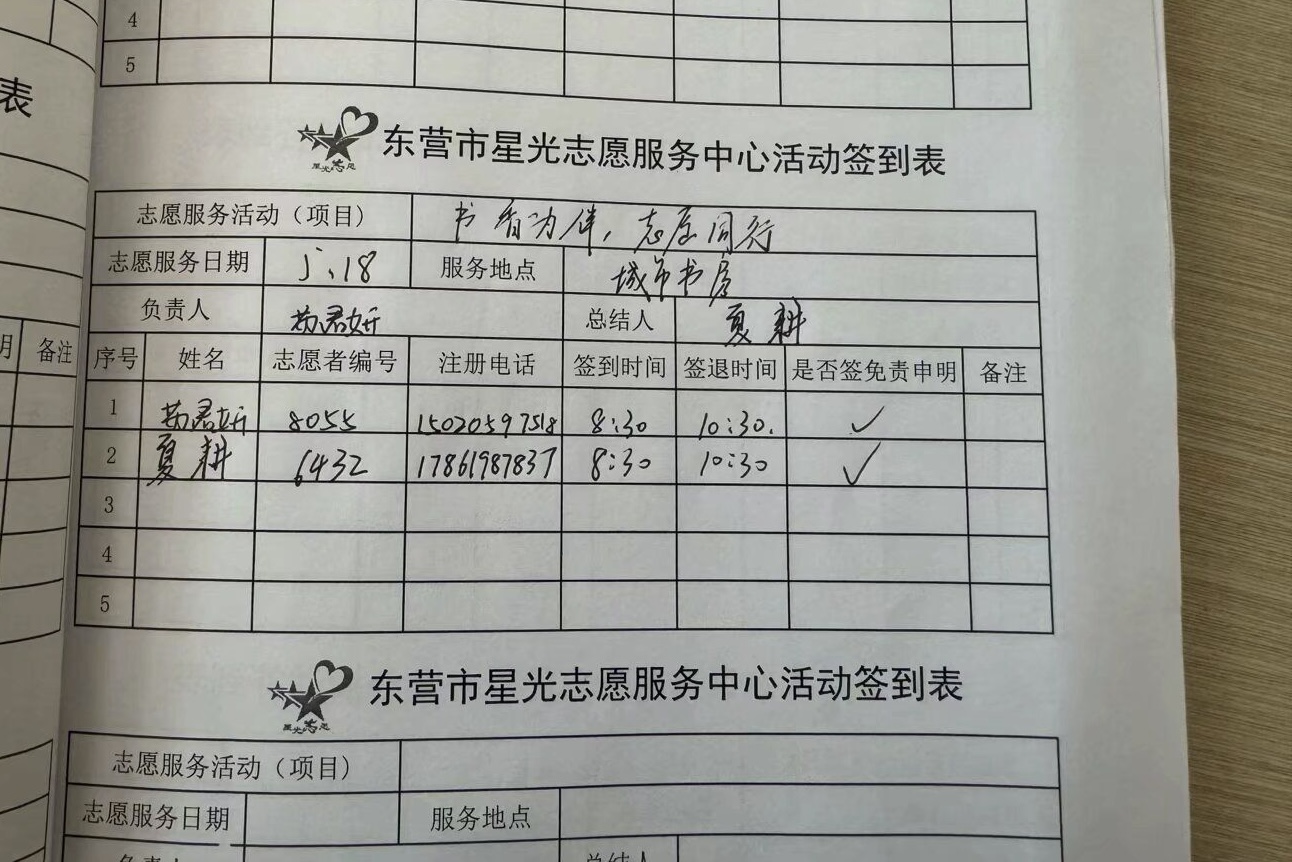 4
5
表
明 备注
星光志愿
东营市星光志愿服务中心活动签到表
志愿服务活动（项目） 书香为伴，志愿同行
志愿服务日期 5.18 服务地点 城市书房
负责人 君妍 总结人 夏耕
序号 姓名 志愿者编号 注册电话 签到时间 签退时间 是否签免责申明 备注
1 君妍 8055 15020597518 8:30 10:30. ✓
2 夏耕 6432 17861987837 8:30 10:30 ✓
3
4
5
星光志愿
东营市星光志愿服务中心活动签到表
志愿服务活动（项目）
志愿服务日期 服务地点
负责人 总结人